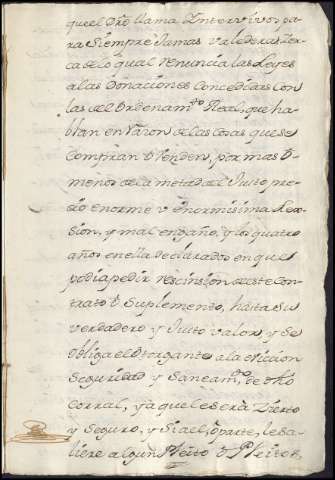 que el Dro llama Intervivos pa
ra siempre jamas valedera; Zer
ca de lo qual renuncia las Leyes
a las Donaciones Concedidas Con
las del Ordenamto Real, que ha
blan en razon de las cosas que se
Compran o Venden, por mas o
menos de la metad del Justo pre
cio enorme y Enormisima Lex
sion, y mal engaño, y los quatro
años en ella declarados en que
podia pedir rescinsion de este Con
trato o Suplemento, hasta su
verdadero y Justo valor, y Se
obliga el Otorgante a la evicion
Seguridad y Saneamto de dho
Corral, y a que le sera Zierto
y Seguro, y si a el, o parte, le sa
liere algun Pleito o Pleitos